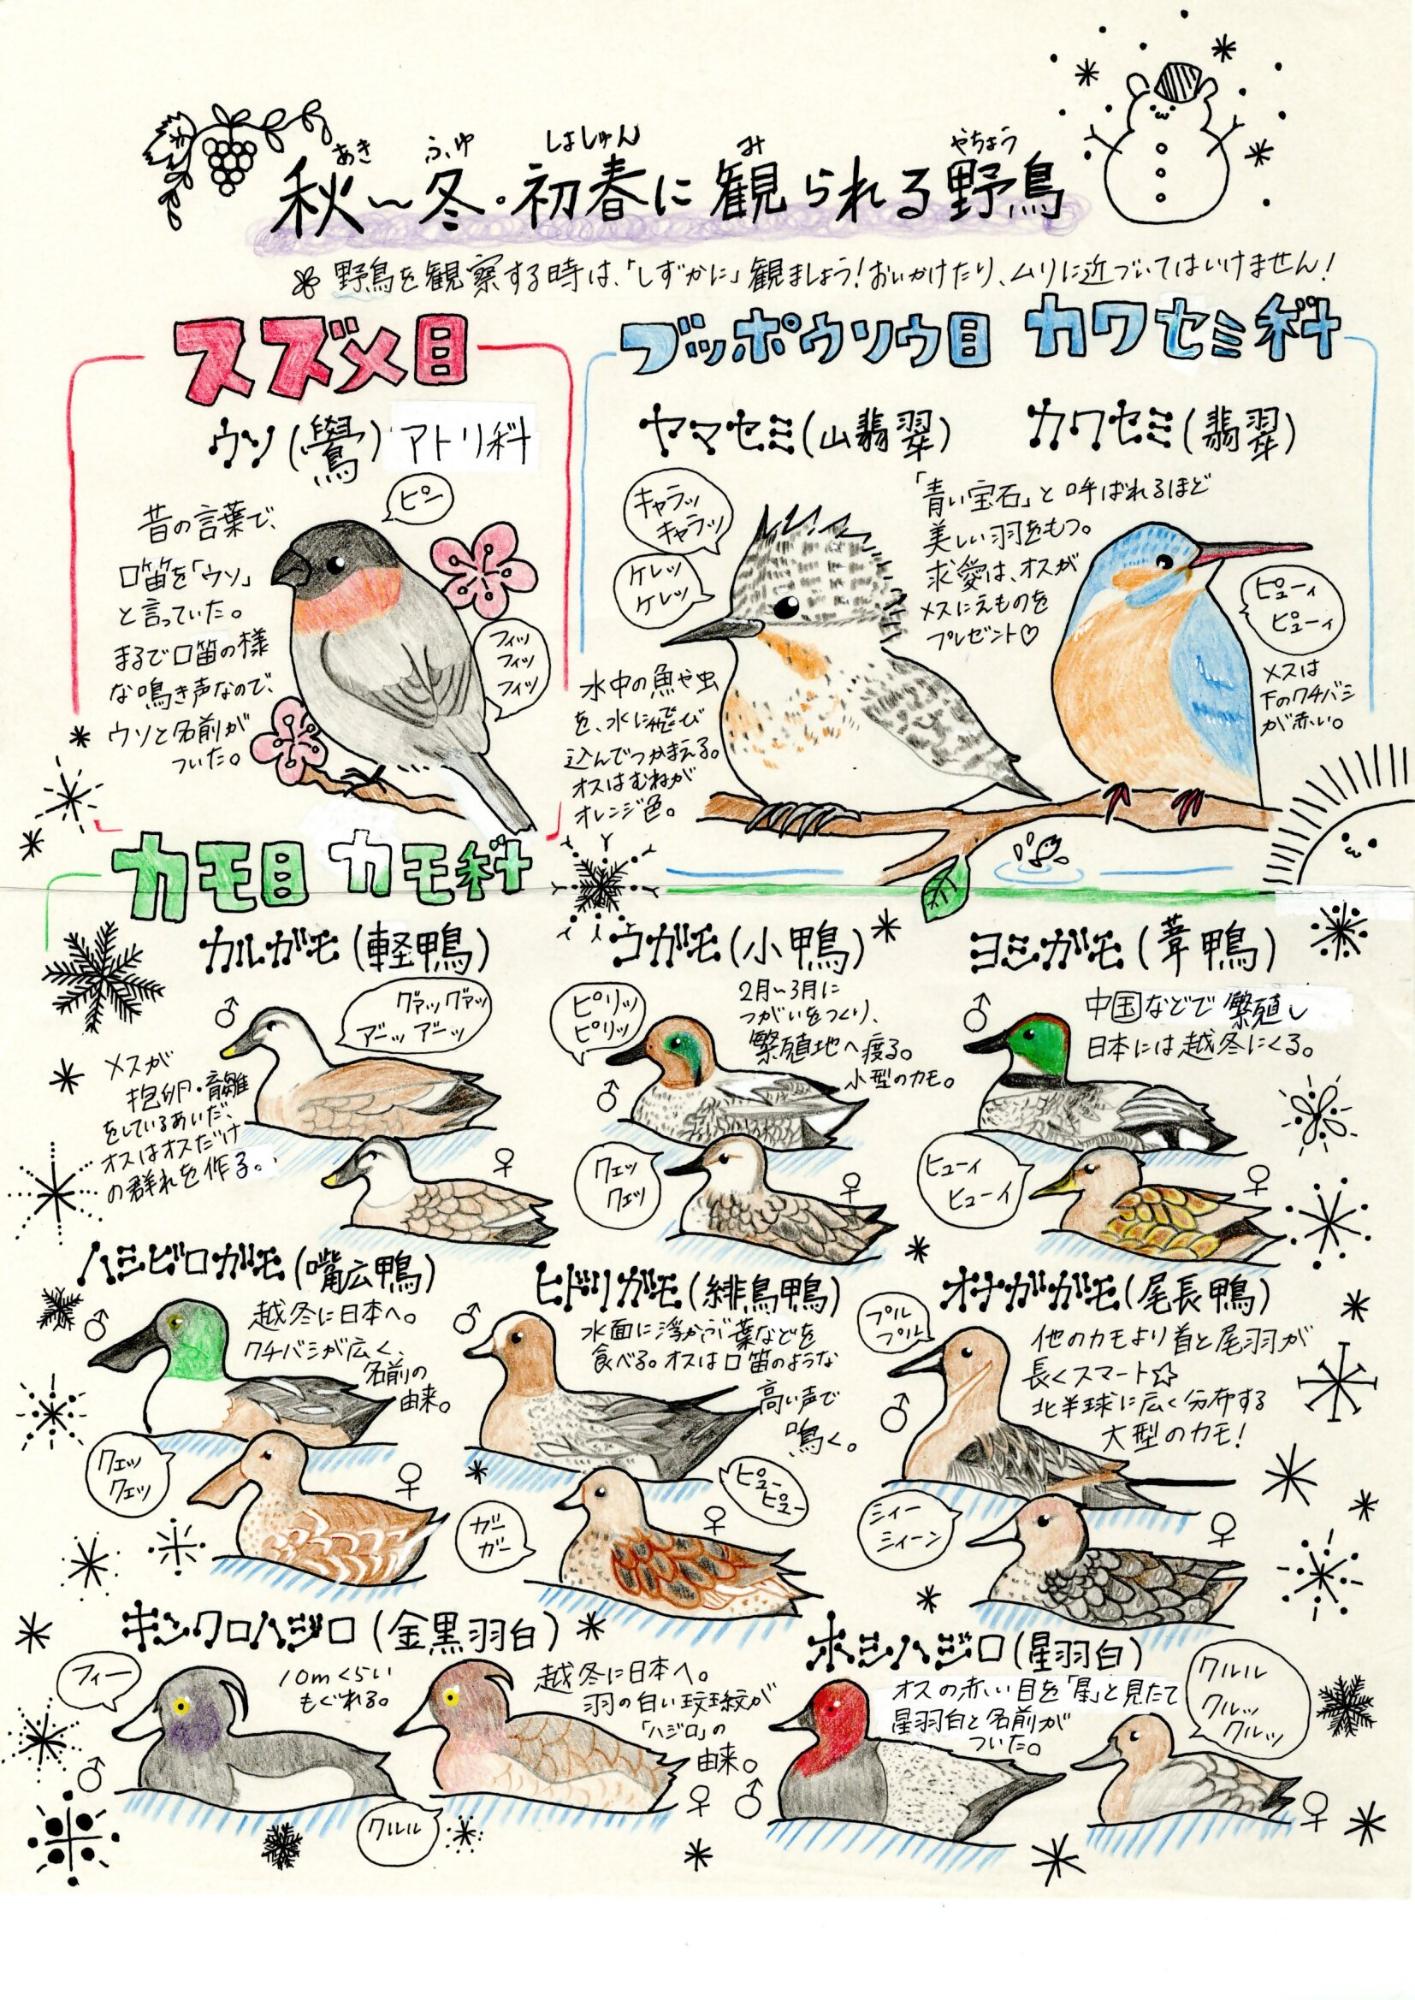 秋～冬・初春に観られる野鳥
あき ふゆ しょしゅん み やちょう
野鳥を観察する時は、「しずかに」観ましょう!おいかけたり、ムリに近づいてはいけません!
スズメ目
ウソ(鷽) アトリ科
ピー
昔の言葉で、
口笛を「ウソ」
と言っていた。
まるで口笛の様
な鳴き声なので、
ウソと名前が
ついた。
フィッ
フィッ
フィッ
ブッポウソウ目 カワセミ科
ヤマセミ(山翡翠)
キャラッ
キャラッ
ケレッ
ケレッ
水中の魚や虫
を、水に飛び
込んでつかまえる。
オスはむねが
オレンジ色。
カワセミ(翡翠)
「青い宝石」と呼ばれるほど
美しい羽をもつ。
求愛は、オスが
メスにえものを
プレゼント♡
ピューィ
ピューィ
メスは
下のクチバシ
が赤い。
カモ目 カモ科
カルガモ(軽鴨)
♂
グァッグァッ
アーッ アーッ
メスが
抱卵・育雛
をしているあいだ、
オスはオスだけ
の群れを作る。
♀
コガモ(小鴨)
ピリッ
ピリッ
♂
2月～3月に
つがいをつくり、
繁殖地へ渡る。
小型のカモ。
クェッ
クェッ
♀
ヨシガモ(葦鴨)
♂
中国などで繁殖し
日本には越冬にくる。
ヒューィ
ヒューィ
♀
ハシビロガモ(嘴広鴨)
♂
越冬に日本へ。
クチバシが広く、
名前の
由来。
クェッ
クェッ
♀
ヒドリガモ(緋鳥鴨)
♂
水面に浮かぶ葉などを
食べる。オスは口笛のような
高い声で
鳴く。
ピュー
ピュー
ガー
ガー
♀
オナガガモ(尾長鴨)
プル
プル
♂
他のカモより首と尾羽が
長くスマート☆
北半球に広く分布する
大型のカモ!
シィー
シィーン
♀
キンクロハジロ(金黒羽白)
フィー
♂
10mくらい
もぐれる。
越冬に日本へ。
羽の白い紋が
「ハジロ」の
由来。
クルル
♀
ホシハジロ(星羽白)
♂
オスの赤い目を「星」と見たて
星羽白と名前が
ついた。
クルル
クルッ
クルッ
♀